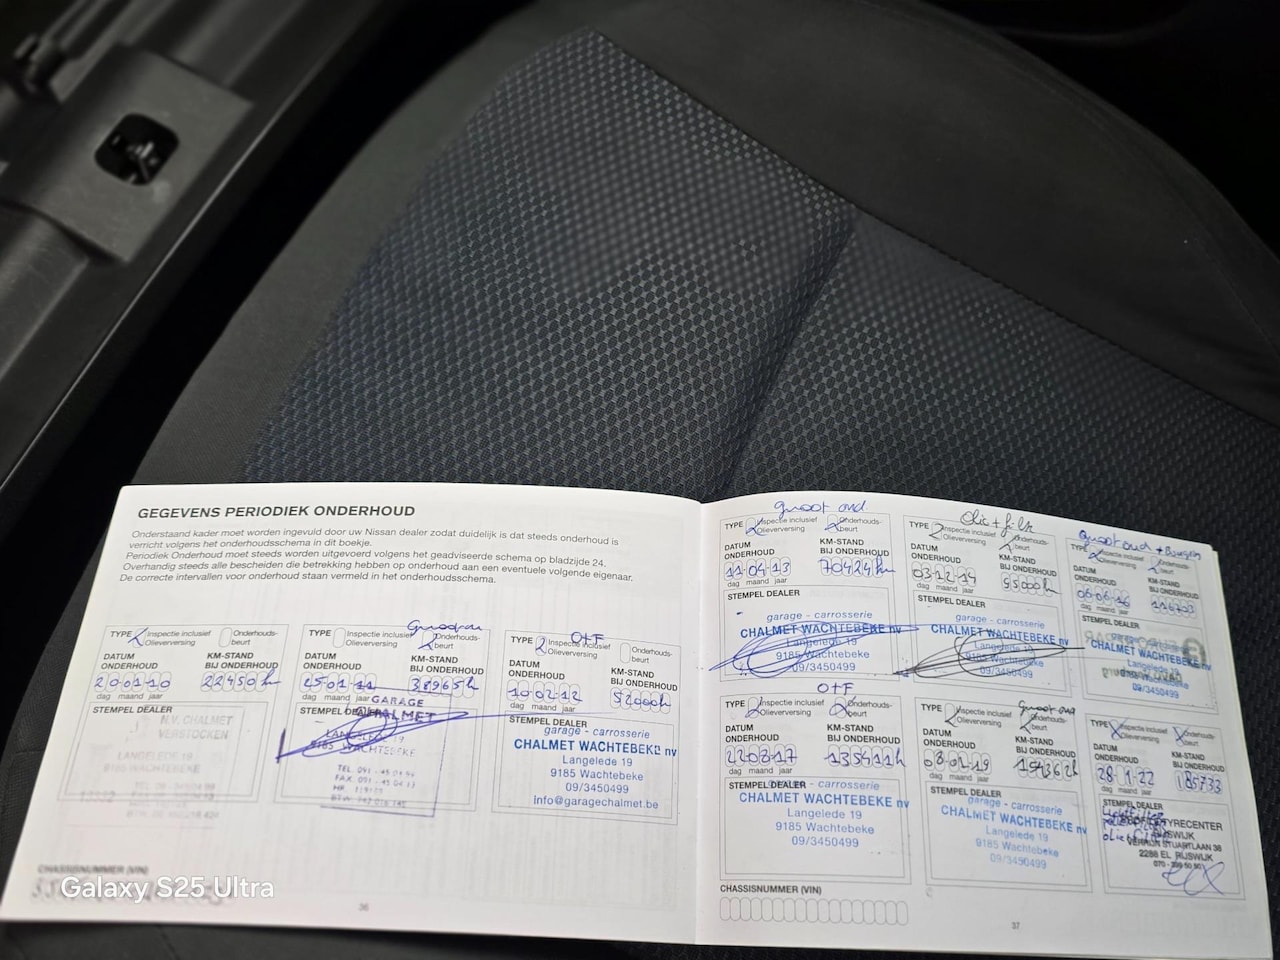 GEGEVENS PERIODIEK ONDERHOUD
Onderstaand kader moet worden ingevuld door uw Nissan dealer zodat duidelijk is dat steeds onderhoud is
verricht volgens het onderhoudsschema in dit boekje.
Periodiek Onderhoud moet steeds worden uitgevoerd volgens het geadviseerde schema op bladzijde 24.
Overhandig steeds alle bescheiden die betrekking hebben op onderhoud aan een eventuele volgende eigenaar.
De correcte intervallen voor onderhoud staan vermeld in het onderhoudsschema.
TYPE Inspectie inclusief Olieverversing Onderhouds-beurt
DATUM ONDERHOUD KM-STAND BIJ ONDERHOUD
20 01 10 22450 k
dag maand jaar
STEMPEL DEALER
N.V. CHALMET
VERSTOCKEN
LANGELEDE 19
9185 WACHTEBEKE
TYPE Inspectie inclusief Olieverversing Onderhouds-beurt
DATUM ONDERHOUD KM-STAND BIJ ONDERHOUD
25 01 11 38965 k
dag maand jaar
STEMPEL DEALER
GARAGE
CHALMET
LANGELEDE 19
9185 WACHTEBEKE
O+F
TYPE Inspectie inclusief Olieverversing Onderhouds-beurt
DATUM ONDERHOUD KM-STAND BIJ ONDERHOUD
10 02 12 52000 k
dag maand jaar
STEMPEL DEALER
garage - carrosserie
CHALMET WACHTEBEKE nv
Langelede 19
9185 Wachtebeke
09/3450499
Info@garagechalmet.be
CHASSISNUMMER (VIN)
36
groot ond
TYPE Inspectie inclusief Olieverversing Onderhouds-beurt
DATUM ONDERHOUD KM-STAND BIJ ONDERHOUD
11 04 13 70424 km
dag maand jaar
STEMPEL DEALER
garage - carrosserie
CHALMET WACHTEBEKE nv
Langelede 19
9185 Wachtebeke
09/3450499
Olie + filt
TYPE Inspectie inclusief Olieverversing Onderhouds-beurt
DATUM ONDERHOUD KM-STAND BIJ ONDERHOUD
03 12 14 95000 k
dag maand jaar
STEMPEL DEALER
garage - carrosserie
CHALMET WACHTEBEKE nv
Langelede 19
9185 Wachtebeke
09/3450499
groot ond + Bougies
TYPE Inspectie inclusief Olieverversing Onderhouds-beurt
DATUM ONDERHOUD KM-STAND BIJ ONDERHOUD
06 06 16
dag maand jaar
STEMPEL DEALER
CHALMET WACHTEBEKE nv
Langelede 19
9185 Wachtebeke
09/3450499
O+F
TYPE Inspectie inclusief Olieverversing Onderhouds-beurt
DATUM ONDERHOUD KM-STAND BIJ ONDERHOUD
22 03 17 135411 k
dag maand jaar
STEMPEL DEALER
garage - carrosserie
CHALMET WACHTEBEKE nv
Langelede 19
9185 Wachtebeke
09/3450499
groot ond
TYPE Inspectie inclusief Olieverversing Onderhouds-beurt
DATUM ONDERHOUD KM-STAND BIJ ONDERHOUD
08 02 19 154362 k
dag maand jaar
STEMPEL DEALER
garage - carrosserie
CHALMET WACHTEBEKE nv
Langelede 19
9185 Wachtebeke
09/3450499
TYPE Inspectie inclusief Olieverversing Onderhouds-beurt
DATUM ONDERHOUD KM-STAND BIJ ONDERHOUD
28 1 22 185733
dag maand jaar
STEMPEL DEALER
Luchtfilter
oliefilter
TYRECENTER
RIJSWIJK
STUARTLAAN 38
2288 EL RIJSWIJK
CHASSISNUMMER (VIN)
37
Galaxy S25 Ultra